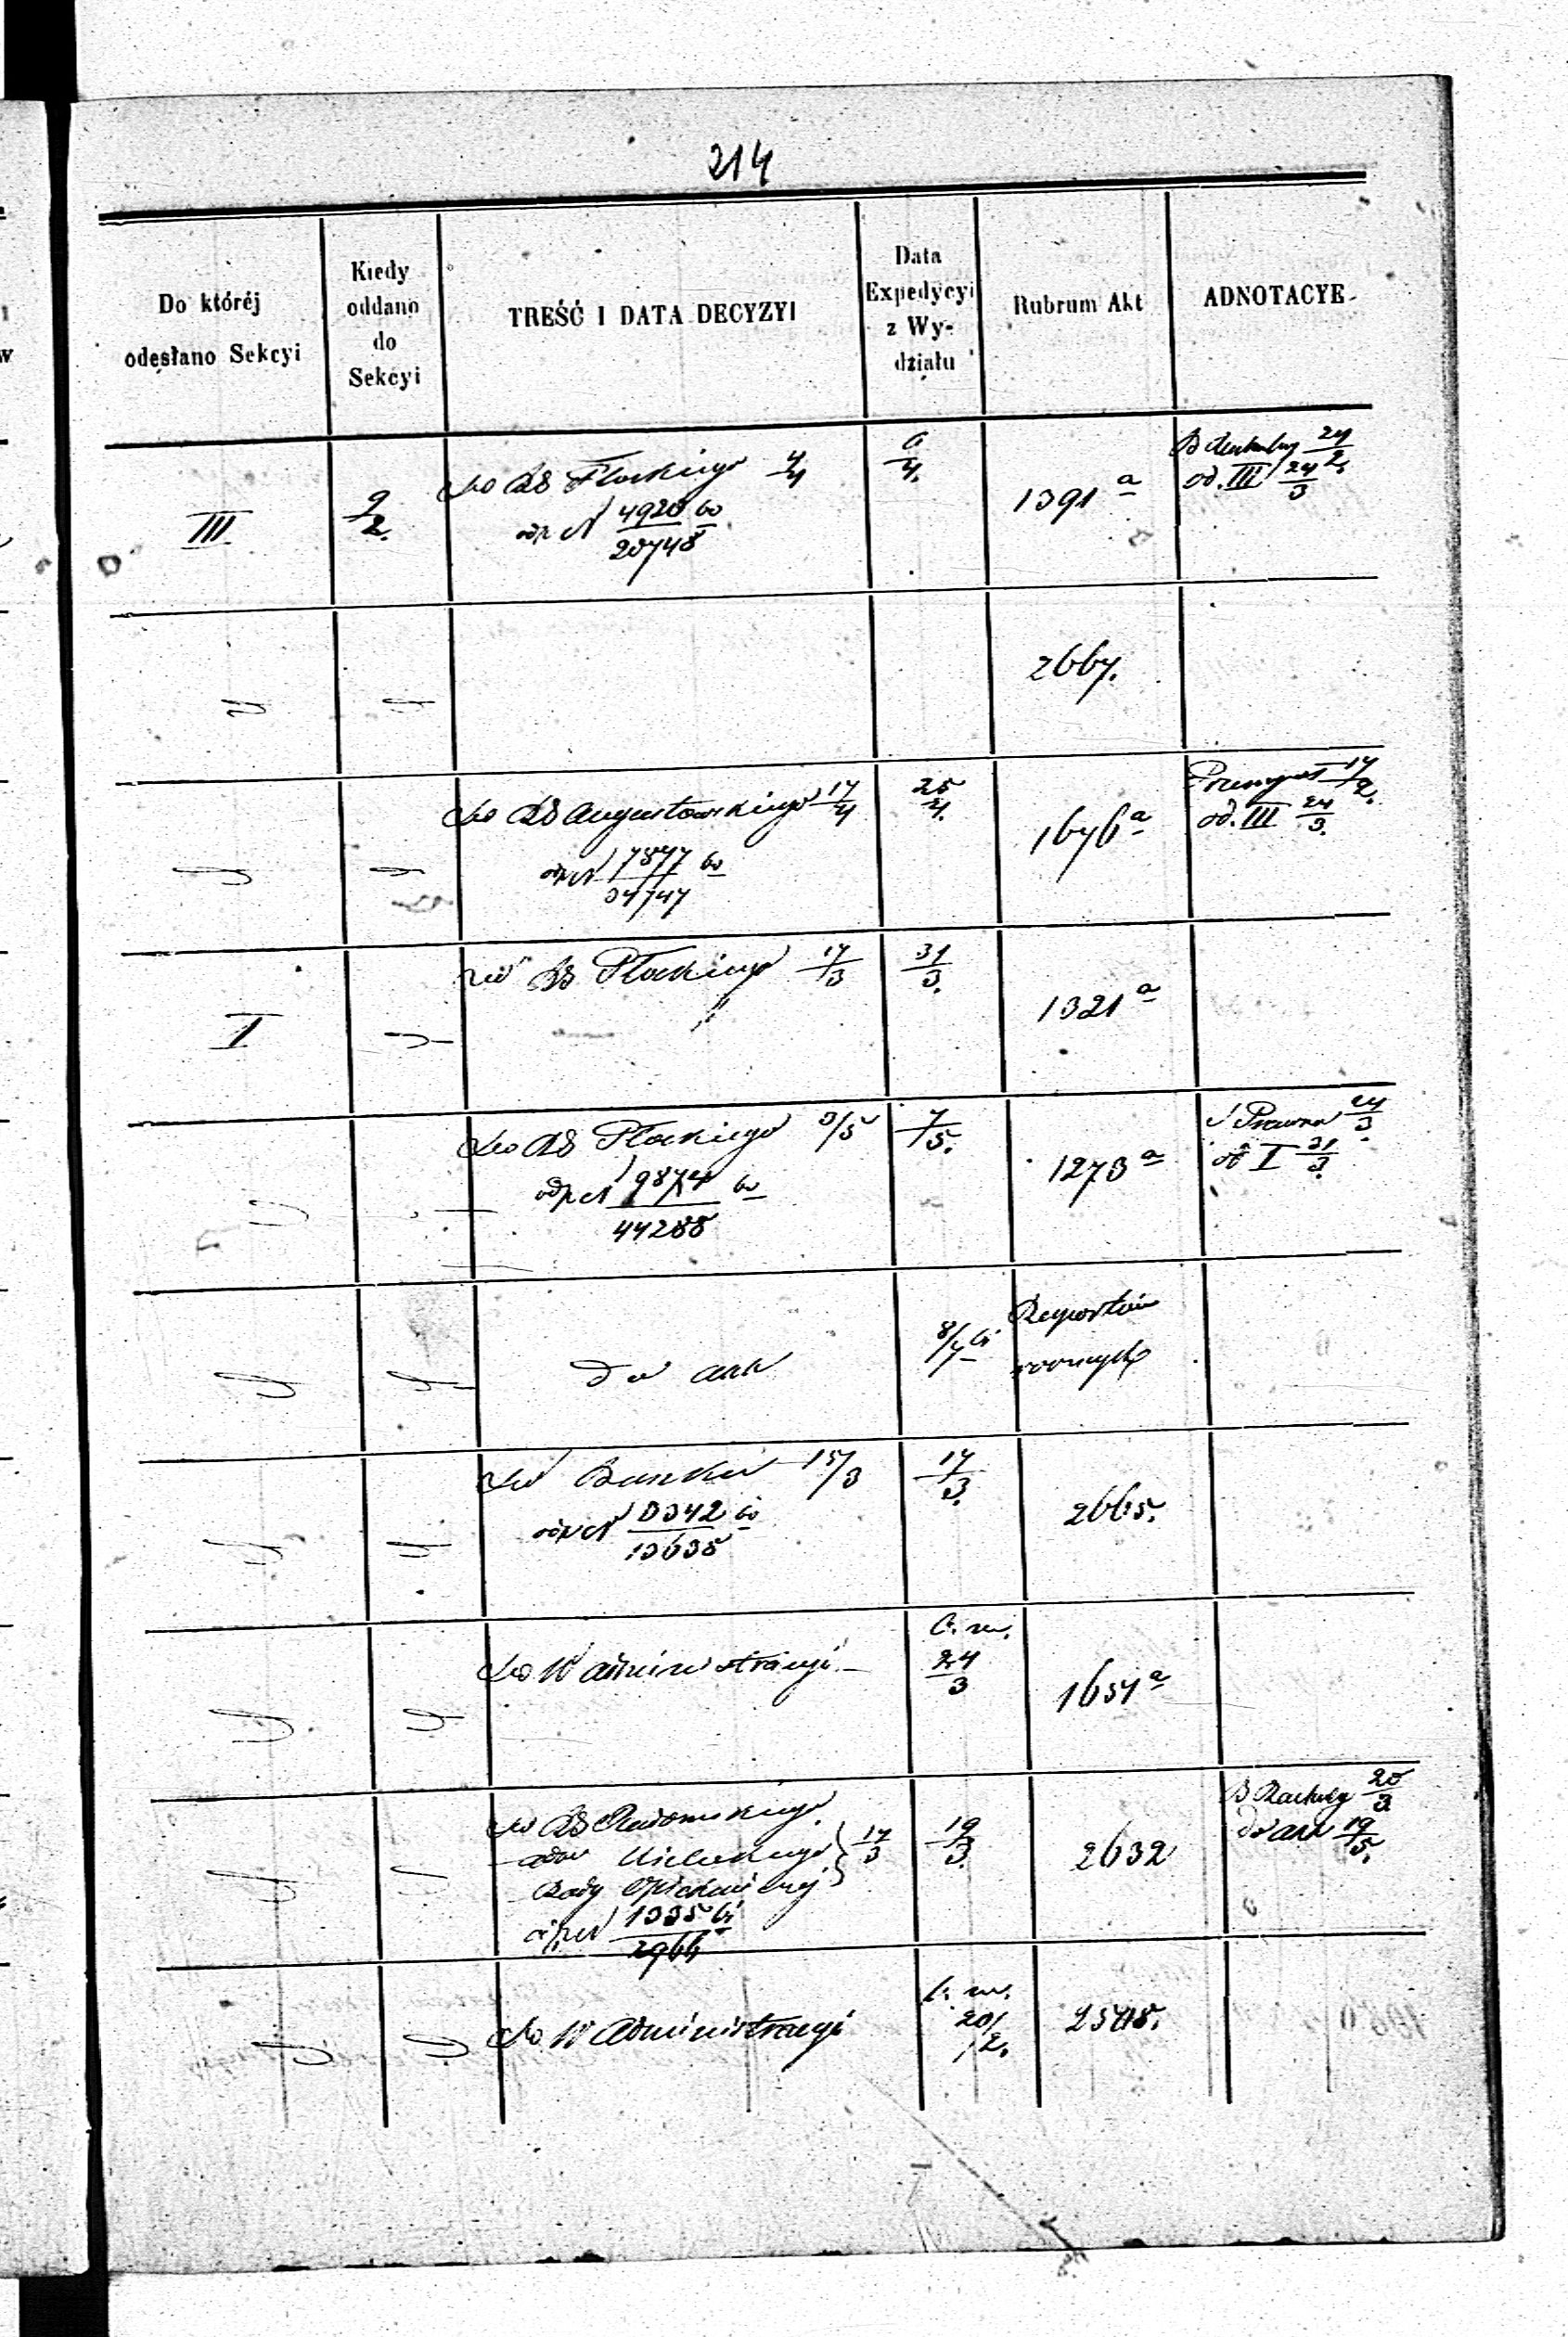 214
Do któréj
odesłano Sekcyi
Kiedy
oddano
do
Sekcyi
TREŚĆ I DATA DECYZYI
Data
Expedycyi
z Wy-
działu
Rubrum Akt
ADNOTACYE
III
9/2.
do RG Płockiego 4/4
4920/20748
6/4.
1391 a
24/2.
od. III 24/3
2667.
do RG Augustowskiego 17/4
7877/34747
25/4.
1676 a
17/2.
od. III 24/3.
I
RG Płockiego 17/3
"
31/3.
1321 a
do RG Płockiego 3/5
9874/44288
7/5.
1273 a
Prawna 24/3
od I 31/3.
do akt
8/4
Raportów
do Banku 15/3
3342/13638
17/3.
2665.
do W Administracyi
24/3
1654 a
do RG Radomskiego
Kieleckiego
Rady Opiekuńczej
17/3
1335/2966
19/3.
2632
20/3
do akt 19/5.
do W Administracyi
20/2.